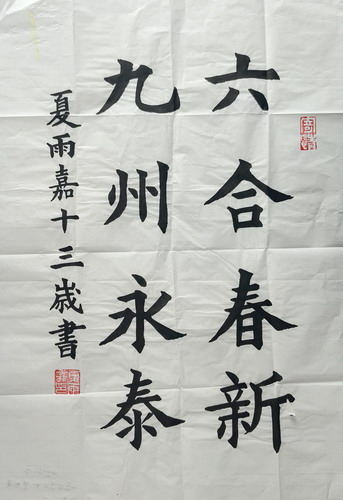 六合春新
九州永泰
夏雨嘉十三歳書